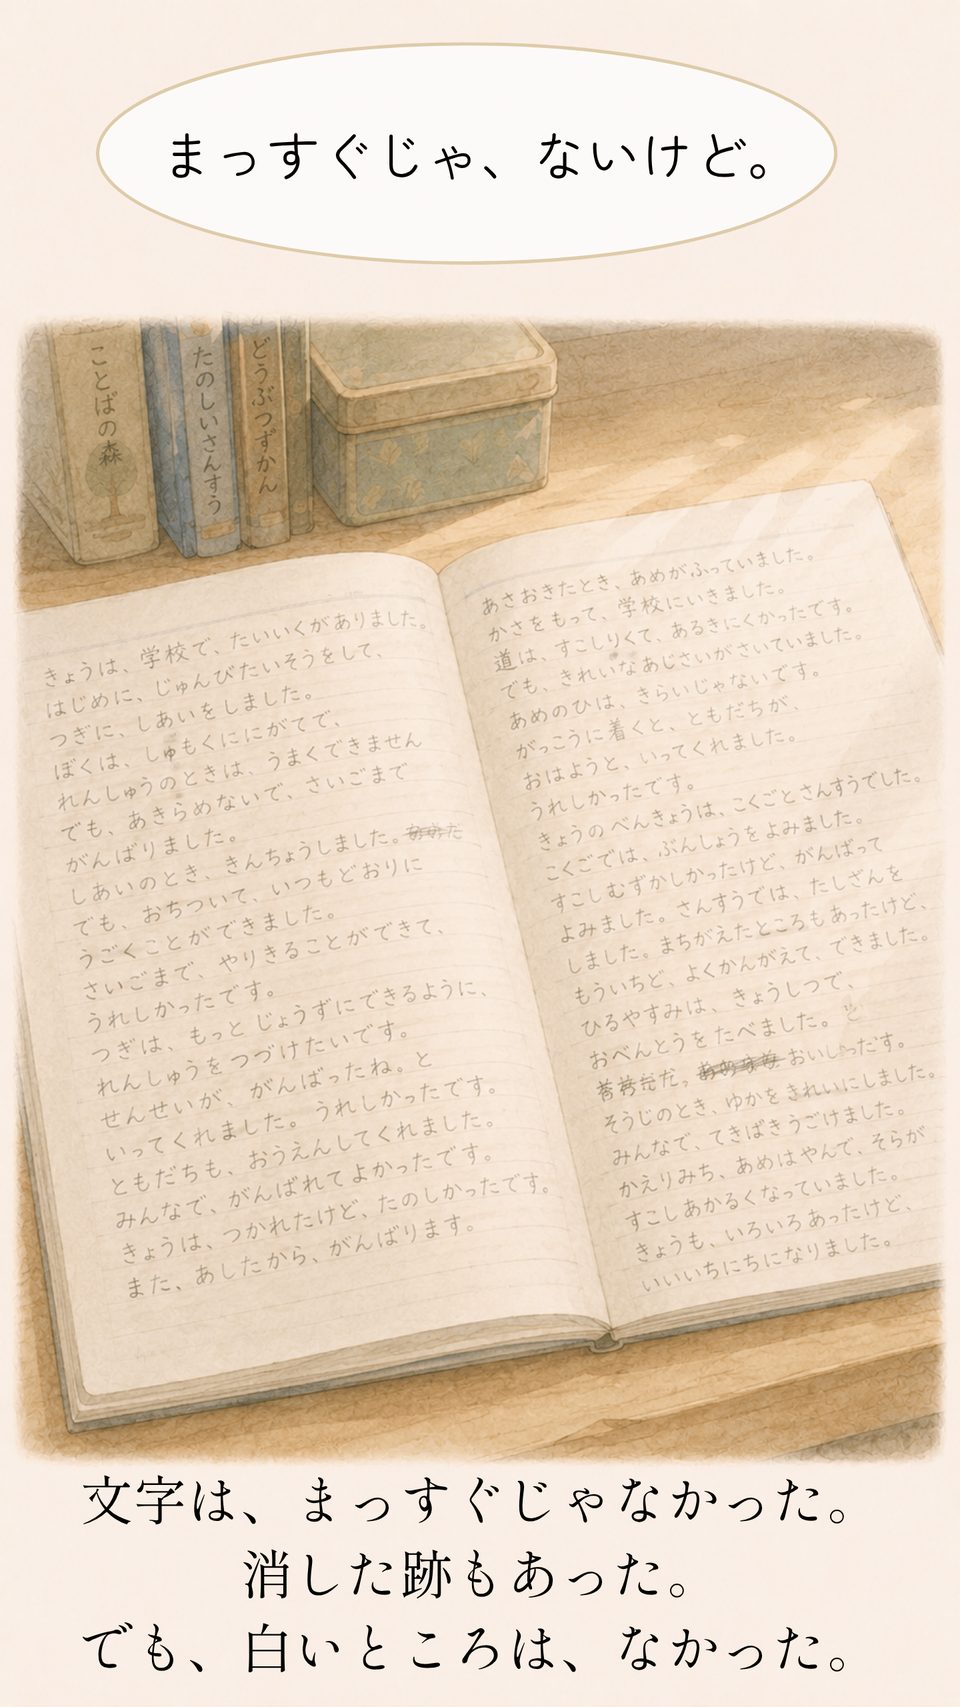 まっすぐじゃ、ないけど。
ことばの森
たのしいさんすう
どうぶつずかん
きょうは、学校で、たいいくがありました。
はじめに、じゅんびたいそうをして、
つぎに、しあいをしました。
ぼくは、しゅもくににがてで、
れんしゅうのときは、うまくできません
でも、あきらめないで、さいごまで
がんばりました。
しあいのとき、きんちょうしました。
でも、おちついて、いつもどおりに
うごくことができました。
さいごまで、やりきることができて、
うれしかったです。
つぎは、もっとじょうずにできるように、
れんしゅうをつづけたいです。
せんせいが、がんばったね。と
いってくれました。うれしかったです。
ともだちも、おうえんしてくれました。
みんなで、がんばれてよかったです。
きょうは、つかれたけど、たのしかったです。
また、あしたから、がんばります。
あさおきたとき、あめがふっていました。
かさをもって、学校にいきました。
道は、すこしりくて、あるきにくかったです。
でも、きれいなあじさいがさいていました。
あめのひは、きらいじゃないです。
がっこうに着くと、ともだちが、
おはようと、いってくれました。
うれしかったです。
きょうのべんきょうは、こくごとさんすうでした。
こくごでは、ぶんしょうをよみました。
すこしむずかしかったけど、がんばって
よみました。さんすうでは、たしざんを
しました。まちがえたところもあったけど、
もういちど、よくかんがえて、できました。
ひるやすみは、きょうしつで、
おべんとうをたべました。
おいしっだす。
そうじのとき、ゆかをきれいにしました。
みんなで、てきぱきうごけました。
かえりみち、あめはやんで、そらが
すこしあかるくなっていました。
きょうも、いろいろあったけど、
いいいちにちになりました。
文字は、まっすぐじゃなかった。
消した跡もあった。
でも、白いところは、なかった。